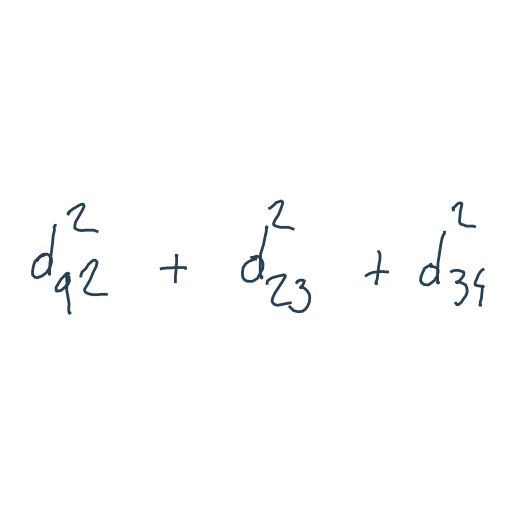 d_{92}^{2} + d_{23}^{2} + d_{34}^{2}